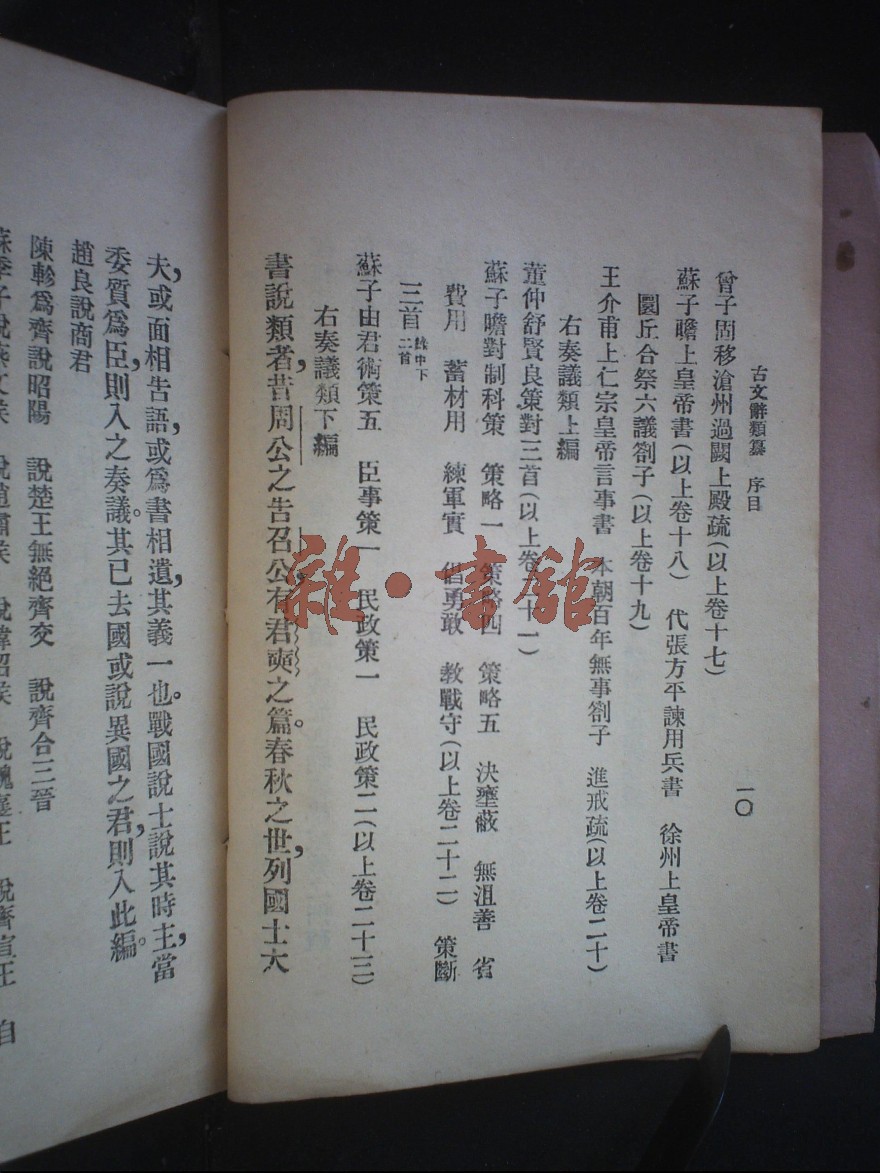 古文辭類纂　序目
一〇
曾子固移滄州過闕上殿疏(以上卷十七)
蘇子瞻上皇帝書(以上卷十八)　代張方平諫用兵書　徐州上皇帝書
圜丘合祭六議劄子(以上卷十九)
王介甫上仁宗皇帝言事書　本朝百年無事劄子　進戒疏(以上卷二十)
右奏議類上編
董仲舒賢良策對三首(以上卷二十一)
蘇子瞻對制科策　策略一　策略四　策略五　決壅蔽　無沮善　省
費用　蓄材用　練軍實　倡勇敢　教戰守(以上卷二十二)　策斷
三首錄中下二首
蘇子由君術策五　臣事策一　民政策一　民政策二(以上卷二十三)
右奏議類下編
書說類者，昔周公之告召公，有君奭之篇。春秋之世，列國士大
夫，或面相告語，或爲書相遺，其義一也。戰國說士，說其時主，當
委質爲臣，則入之奏議。其已去國，或說異國之君，則入此編。
趙良說商君
陳軫爲齊說昭陽　說楚王無絕齊交　說齊合三晉
蘇季子說燕文侯　說趙肅侯　說韓昭侯　說魏襄王　說齊宣王　自
雜·書館